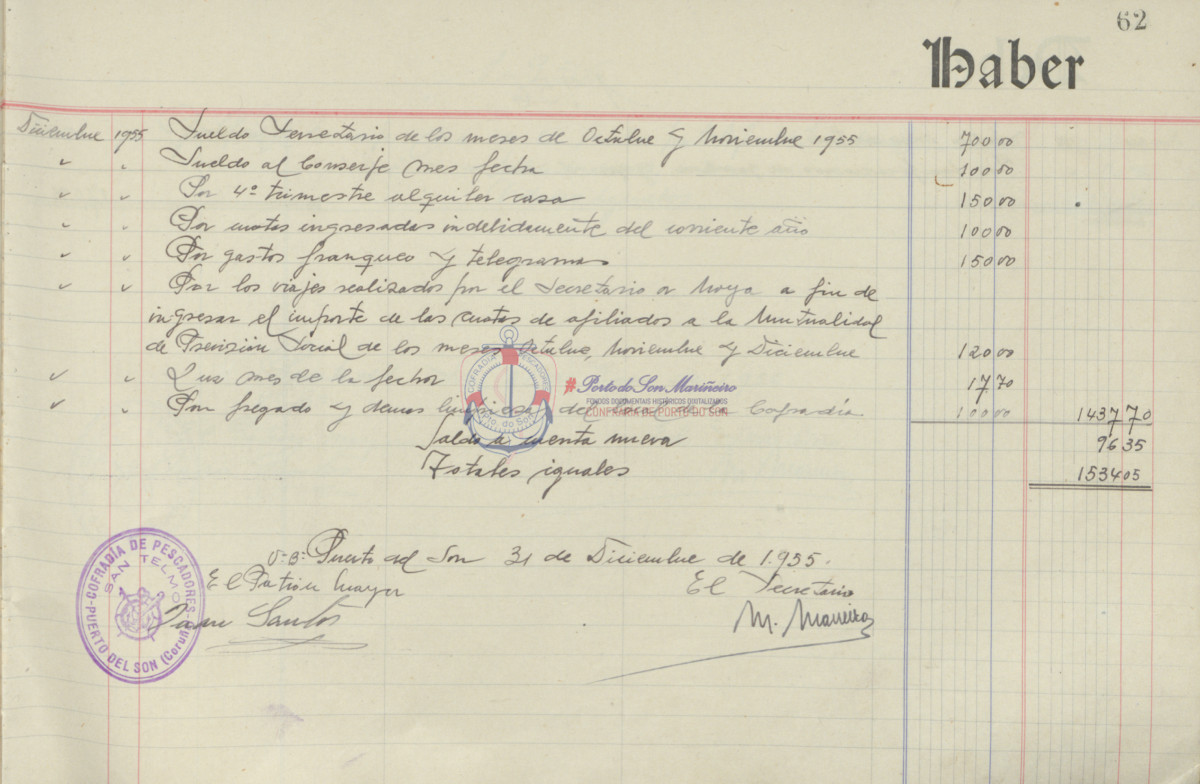 62
Haber
Diciembre 1955 Sueldo Secretario de los meses de Octubre y Noviembre 1955 700 00
" " Sueldo al Conserje mes fecha 100 00
" " Por 4º trimestre alquiler casa 150 00
" " Por cuotas ingresadas indebidamente del corriente año 100 00
" " Por gastos franqueo y telegramas 150 00
" " Por los viajes realizados por el Secretario a Noya a fin de
ingresar el importe de las cuotas de afiliados a la Mutualidad
de Previsión Social de los meses Octubre, Noviembre y Diciembre 120 00
" " Luz mes de la fecha 17 70
" " Por fregado y demas de la Cofradía 100 00 1437 70
Saldo a cuenta nueva 96 35
Totales iguales 1534 05
COFRADÍA PESCADORES
Pto. do Son
#Porto do Son Mariñeiro
FONDOS DOCUMENTAIS HISTÓRICOS DIXITALIZADOS
CONFRARÍA DE PORTO DO SON
Vº Bº Puerto del Son 31 de Diciembre de 1.955.
El Patrón Mayor El Secretario
Santos M. Maneiro
COFRADÍA DE PESCADORES
SAN TELMO
PUERTO DEL SON (Coruña)